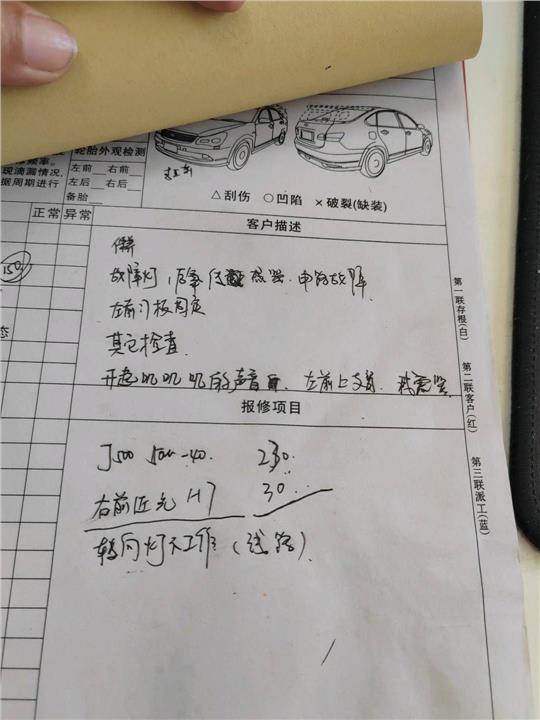 频率。
现滴漏情况,
据周期进行
轮胎外观检测
左前 右前
左后 右后
备胎
△刮伤 ○凹陷 ×破裂(缺装)
正常 异常
客户描述
保养
故障灯,后氧传感器.电路故障
左前门板固定
其它检查
开起叽叽叽的声音 左前上支臂.
报修项目
J500 5W-40. 230.
右前近光 H7 30.
转向灯不工作(线路)
态
第一联存根(白)
第二联客户(红)
第三联派工(蓝)